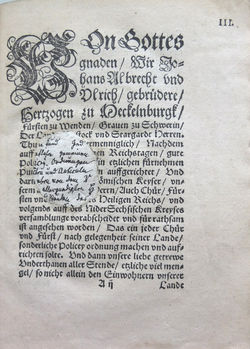 III.
VOn Gottes
gnaden / Wir Jo-
hans Albrecht vnd
Vlrich / gebrüdere /
Hertzogen zu Meckelnburgk /
Fürsten zu Wenden / Grauen zu Schwerin /
Der Land stock vnd Stargarde Herrn.
Thu jedermenniglich / Nachdem
auff Reichstagen / gute
Policey
in etzlichen fürnehmen
auffgerichtet / Vnd
Römischen Keyser / vn-
dern / Auch Chür / Für-
Heiligen Reichs / vnd
volgends auff des NiderSechsischen Kreyses
versamblunge vorabscheidet vnd für rathsam
ist angesehen worden / Das ein jeder Chür
vnd Fürst / nach gelegenheit seiner Lande /
sonderliche Policey ordnung machen vnd auff-
richten solte. Vnd dann vnsere liebe getrewe
Vnderthanen aller Stende / etzliche viel men-
gel / so nicht allein den Einwohnern vnserer
A ij Lande